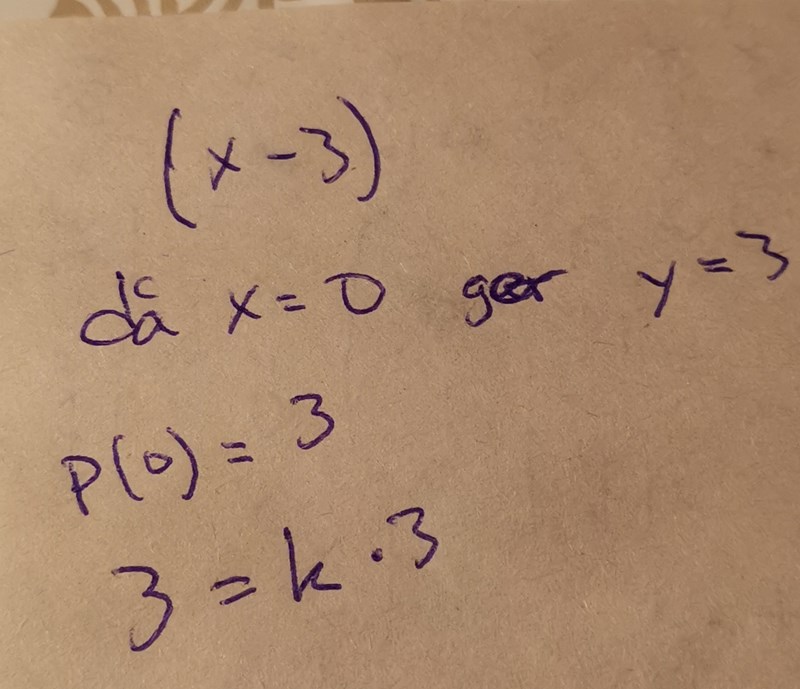 (x-3)
då x=0 ger y=3
P(0)=3
3=k·3